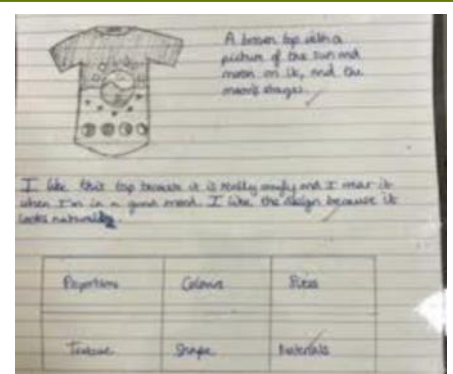 A brown top with a
picture of the sun and
moon on it, and the
moon's stages.
I like this top because it is really comfy and I wear it
when I'm in a good mood. I like the design because it
looks natural
Proportions Colours Sizes
Texture Shape Materials